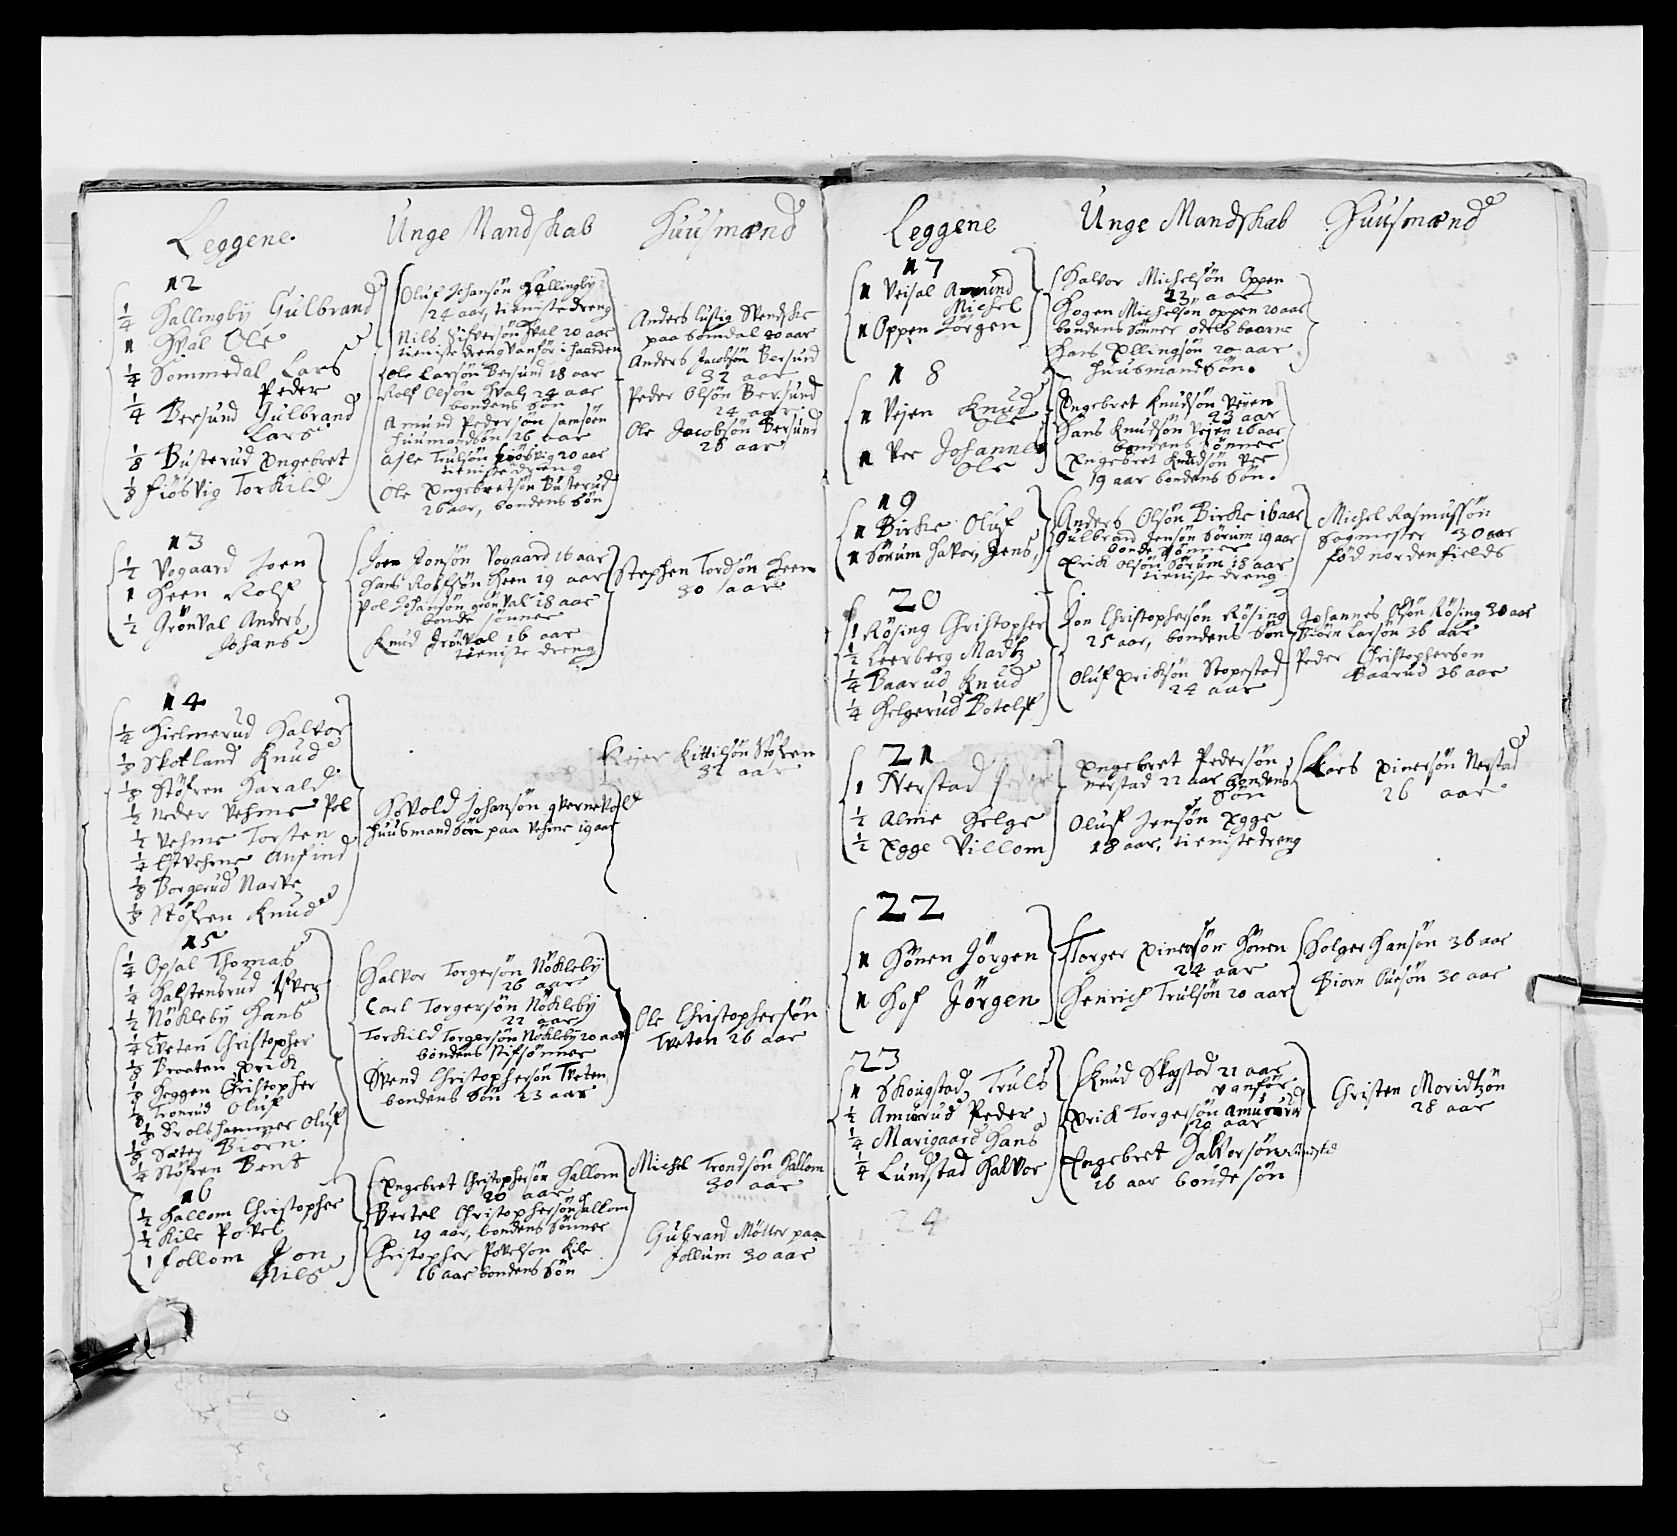 Leggene. Unge Mandskab Huusmænd
12
1/4 Hallingby Gulbrand
1 Hval Ole
1/4 Sommedal Lars
Peder
1/4 Bersund Gulbrand
Lars
1/8 Busterud Engebret
1/8 Fiösvig Torkild
Oluf Johansön Hallingby
24 aar, tieniste dreng
Nils Sifversön Hval 20 aar
tieniste dreng vanför i haanden
Ole Larsön Bersund 18 aar
Rolf Olsön Hval 24 aar
bondens Sön
Amund Pedersön Samsöen
huusmandsön 26 aar
Asle Trulsön fiösvig 20 aar
tieniste dreng
Ole Engebretsön Busterud
26 aar, bondens Sön
Anders lustig Svendske
paa Somdal 40 aar
Anders Jacobsön Bersund
32 aar
Peder Olsön Bersund
24 aar
Ole Jacobsön Bersund
28 aar
13
1/2 Vogaard Joen
1 Heen Rolf
1/2 Grönval Anders
Johans
Joen Jonsön Vogaard 16 aar
Hans Rolfsön Heen 19 aar
Pol Johansön grönval 18 aar
bonde sönner
Knud Grönvol 16 aar
tieniste dreng
Stephen Tordsön Heen
30 aar
14
1/4 Hielmerud Halvor
1/8 Skotland Knud
1/8 Stöfren Harald
1/2 Neder Vehme Pol
1/2 Vehme Torsten
1/4 Østvehme Anfind
1/8 Borgerud Narve
1/8 Stöfren Knud
Hovold Johansön qvernevold
huusmand Sön paa Vehme 19 aar
Reier Kittilsön Stöfren
32 aar
15
1/4 Opsal Thomas
1/4 Halstensrud Ifver
1/2 Nökleby Hans
1/4 Tveten Christopher
1/8 Braaten Erich
1/8 Heggen Christopher
1/8 Tronrud Oluf
1/8 Drolshammer Oluf
1/8 Sæteg Biörn
1/4 Stöfren Bent
Halvor Torgersön Nökleby
26 aar
Carl Torgersön Nökleby
22 aar
Torkild Torgersön Nökleby 20 aar
bondens stifsönner
Svend Christophersön Tveten
bondens Sön 23 aar
Ole Christophersön
Tveten 26 aar
16
1/2 Hallom Christopher
1/2 Kile Povel
1 follom Jon
Nils
Engebret Christophersön Hallom
20 aar
Bertel Christophersön Hallom
19 aar, bondens Sönner
Christopher Povelson Kile
16 aar bondens Sön
Michel Trondsön Hallom
30 aar
Gulbrand Möller paa
follum 30 aar
Leggene Unge Mandskab Huusmænd
17
1 Veisal Amund
Michel
1 Oppen Jörgen
Halvor Michelsön Oppen
23 aar
Hogen Michelsön oppen 20 aar
bondens Sönner odels baarne
Hans Ellingsön 20 aar
huusmandsön.
18
1 Vejen Knud
Ole
1 Vee Johannes
Ole
Engebret Knudsön Vejen
23 aar
Hans Knudsön Vejen 16 aar
bondens Sönner
Engebret Knudsön Vee
19 aar bondens Sön.
19
1 Birke Oluf
1 Sörum Halvor, Jens
Anders Olsön Birke 16 aar
Gulbrand Jensön Sörum 19 aar
bonde sönner
Erik Olsön Sörum 18 aar
tieniste dreng
Michel Rasmussön
Sagmester 30 aar
föd nordenfields
20
1 Rösing Christopher
1/2 Leerberg Madtz
1/4 Baarud Knud
1/4 Helgerud Botolf
Jon Christophersön Rösing
25 aar, bondens Sön
Oluf Eriksön Stopestad
24 aar
Johannes Olsön Rösing 30 aar
Biörn Larsön 36 aar
Peder Christopherson
Baarud 36 aar
21
1 Nerstad Peder
1/2 Alme Helge
1/2 Egge Villom
Engebret Pedersön
Nerstad 22 aar bondens
Sön
Oluf Jensön Egge
18 aar, tieniste dreng
Lars Einersön Nerstad
26 aar
22
1 Hönen Jörgen
1 Hof Jörgen
Torger Einersön Hönen
24 aar
Henrich Trulsön 20 aar
Holger Hansön 36 aar
Biorn Ouesön 30 aar
23
1 Skougstad Truls
1/2 Amurud Peder
1/4 Marigaard Hans
1/4 Lundstad Halvor
Knud Skogstad 21 aar
vanför
Erik Torgersön Amurud
20 aar
Engebret Halvorsön Lundstad
16 aar bonde sön
Christen Moridtzön
28 aar
24